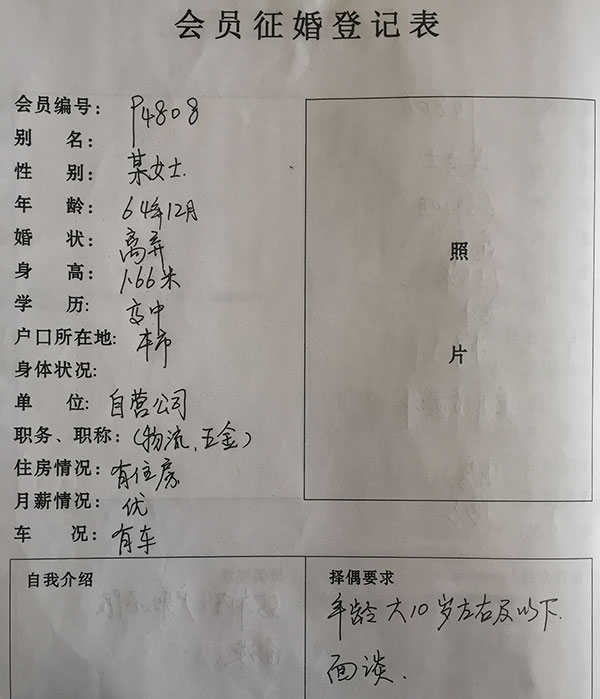 会员征婚登记表
会员编号: P4808
别 名:
性 别: 某女士.
年 龄: 64年12月
婚 状: 离弃
身 高: 1.66米
学 历: 高中
户口所在地: 本市
身体状况:
单 位: 自营公司
职务、职称: (物流、五金)
住房情况: 有住房
月薪情况: 优
车 况: 有车
照
片
自我介绍
择偶要求
年龄大10岁左右及以下.
面谈.